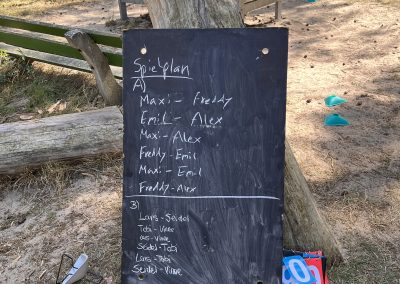 Spielplan
A)
Maxi - Freddy
Emil - Alex
Maxi - Alex
Freddy - Emil
Maxi - Emil
Freddy - Alex
B)
Lars - Seidel
Tobi - Vinne
Lars - Vinne
Seidel - Tobi
Lars - Tobi
Seidel - Vinne